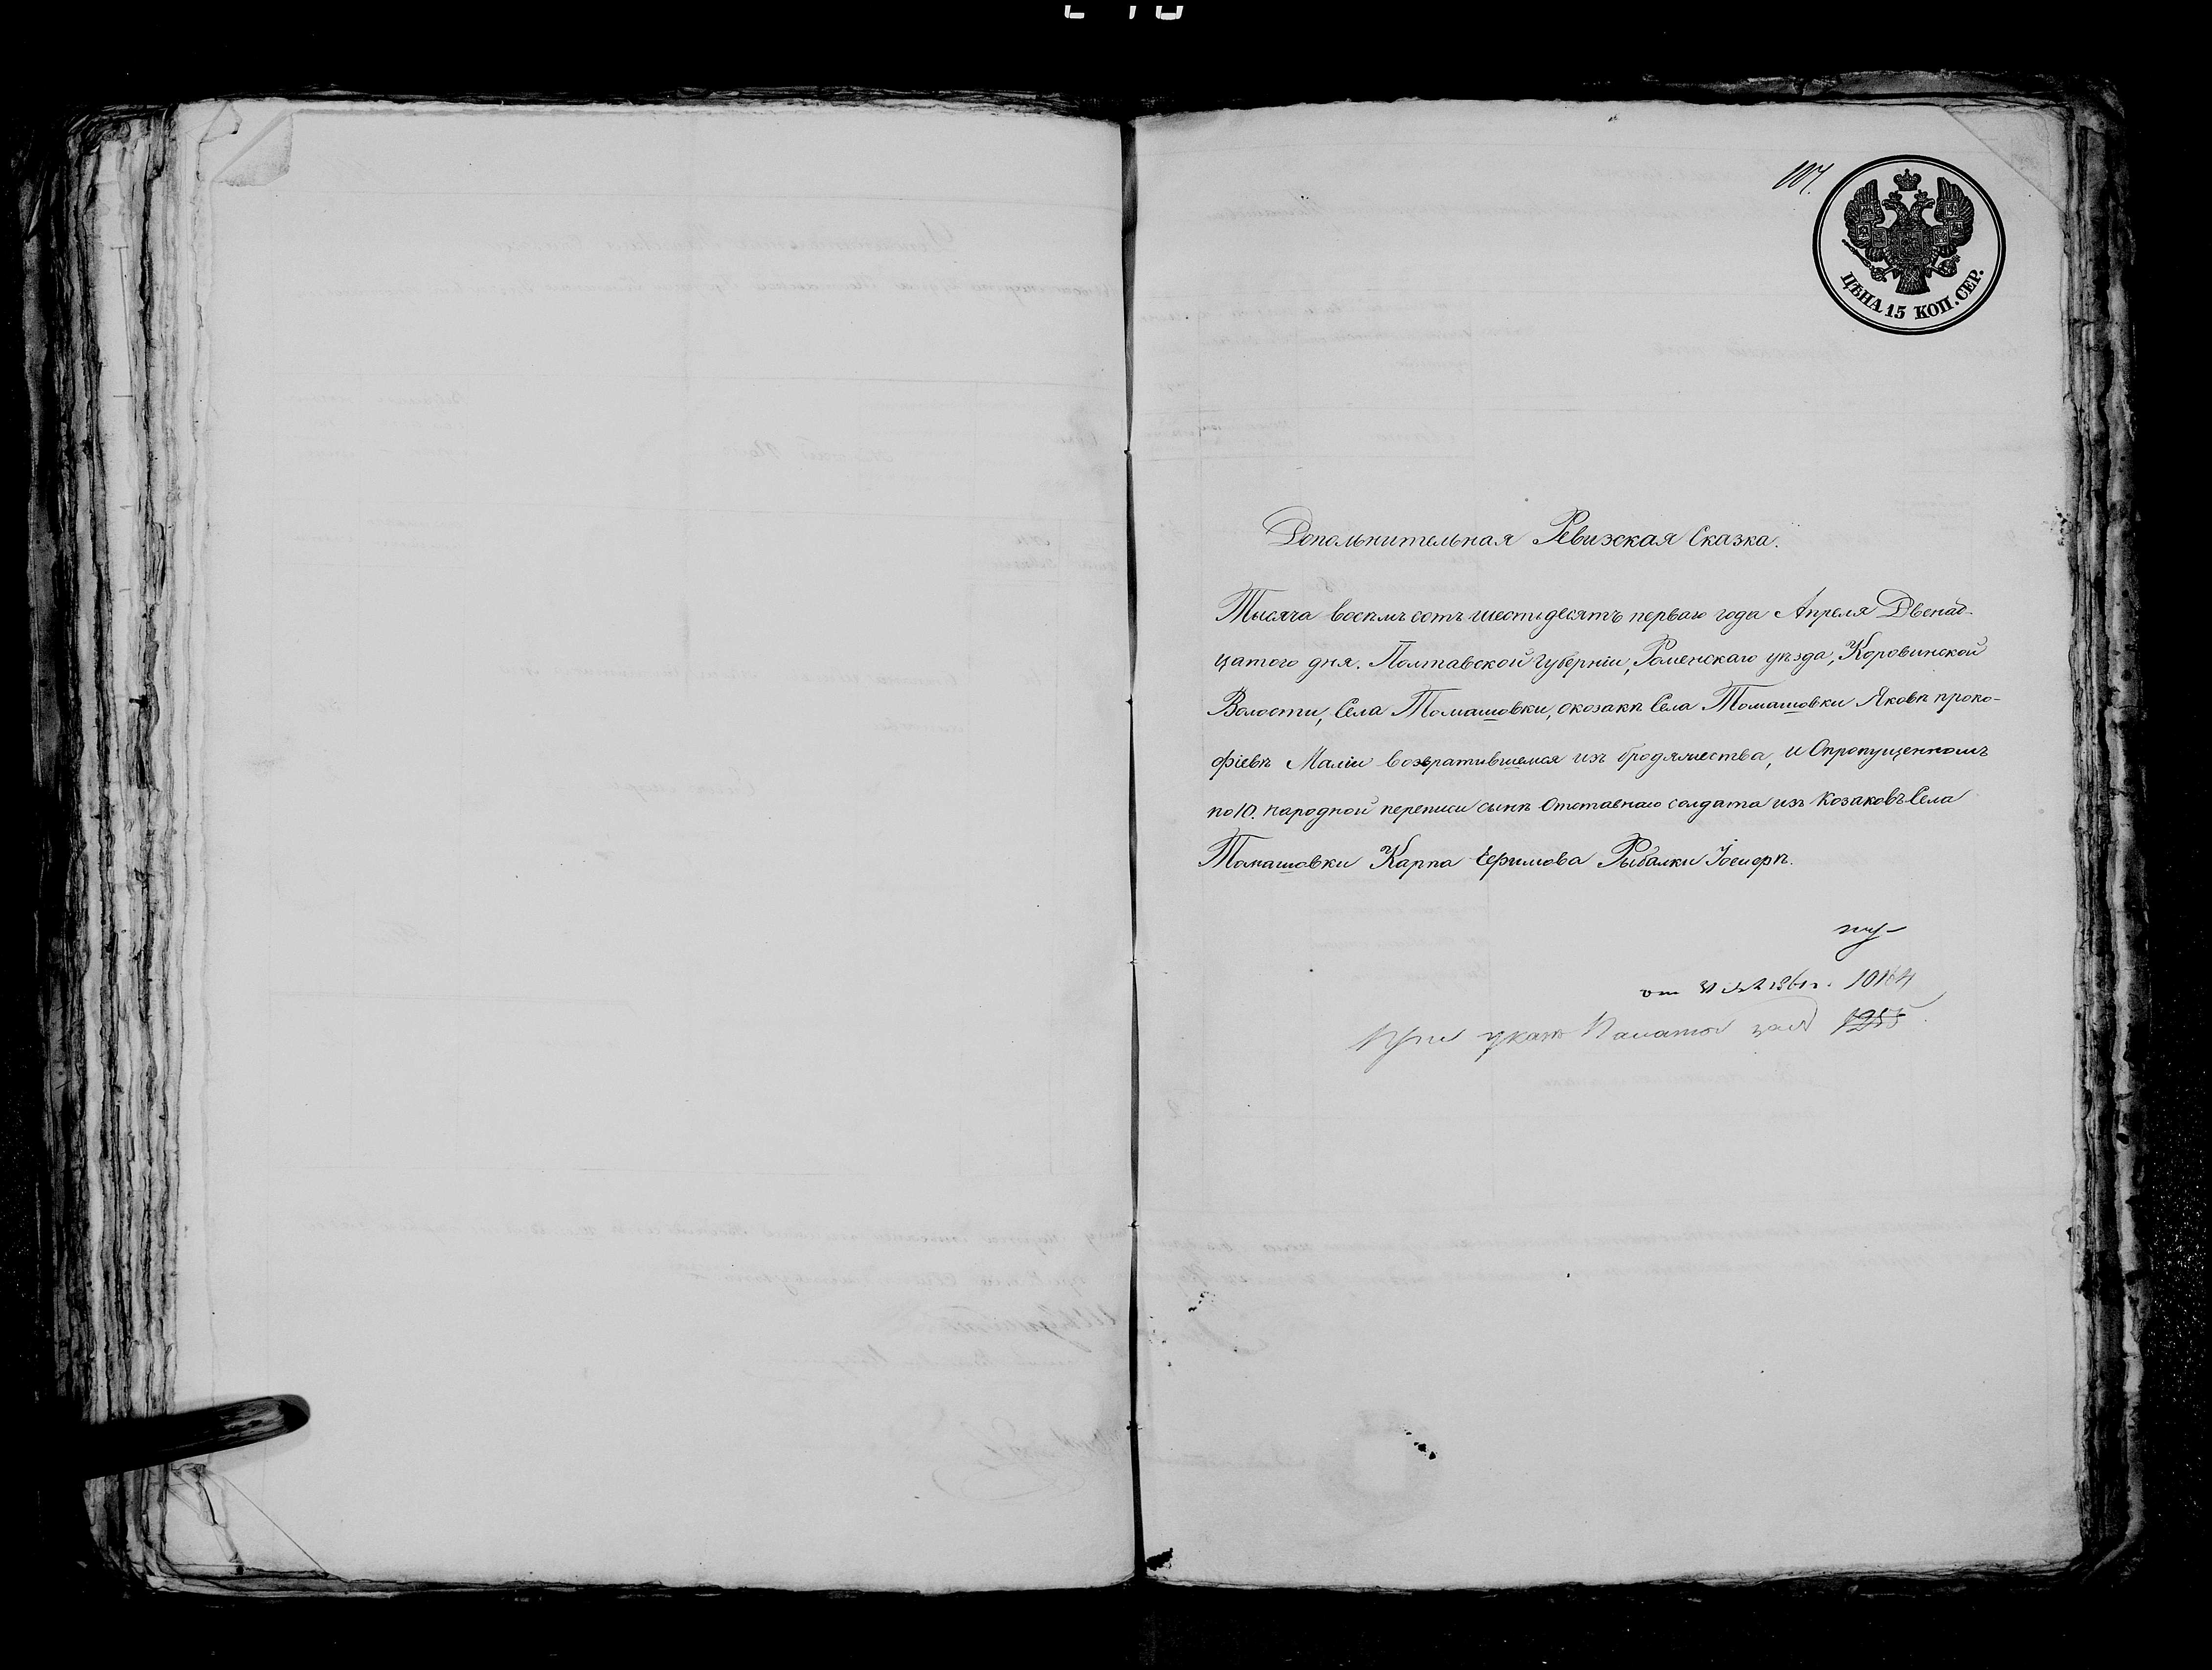 ЦѢНА 15 КОП. СЕР.
Дополнительная Ревизская Сказка.
Тысяча восемь сотъ шестьдесятъ перваго года Апреля Двенад-
цатого дня. Полтавской губерніи, Роменскаго уѣзда, Коровинской
Волости, Села Томашовки, окозакѣ Села Томашовки Яковѣ проко-
фіевѣ Маліи возвратившемся изъ бродяжества, и Опропущенномъ
по 10. народной переписи сынѣ Отставнаго солдата изъ Козаковъ Села
Томашовки Карпа Ефимова Рыбалки Іосифѣ.
При указѣ Палаты